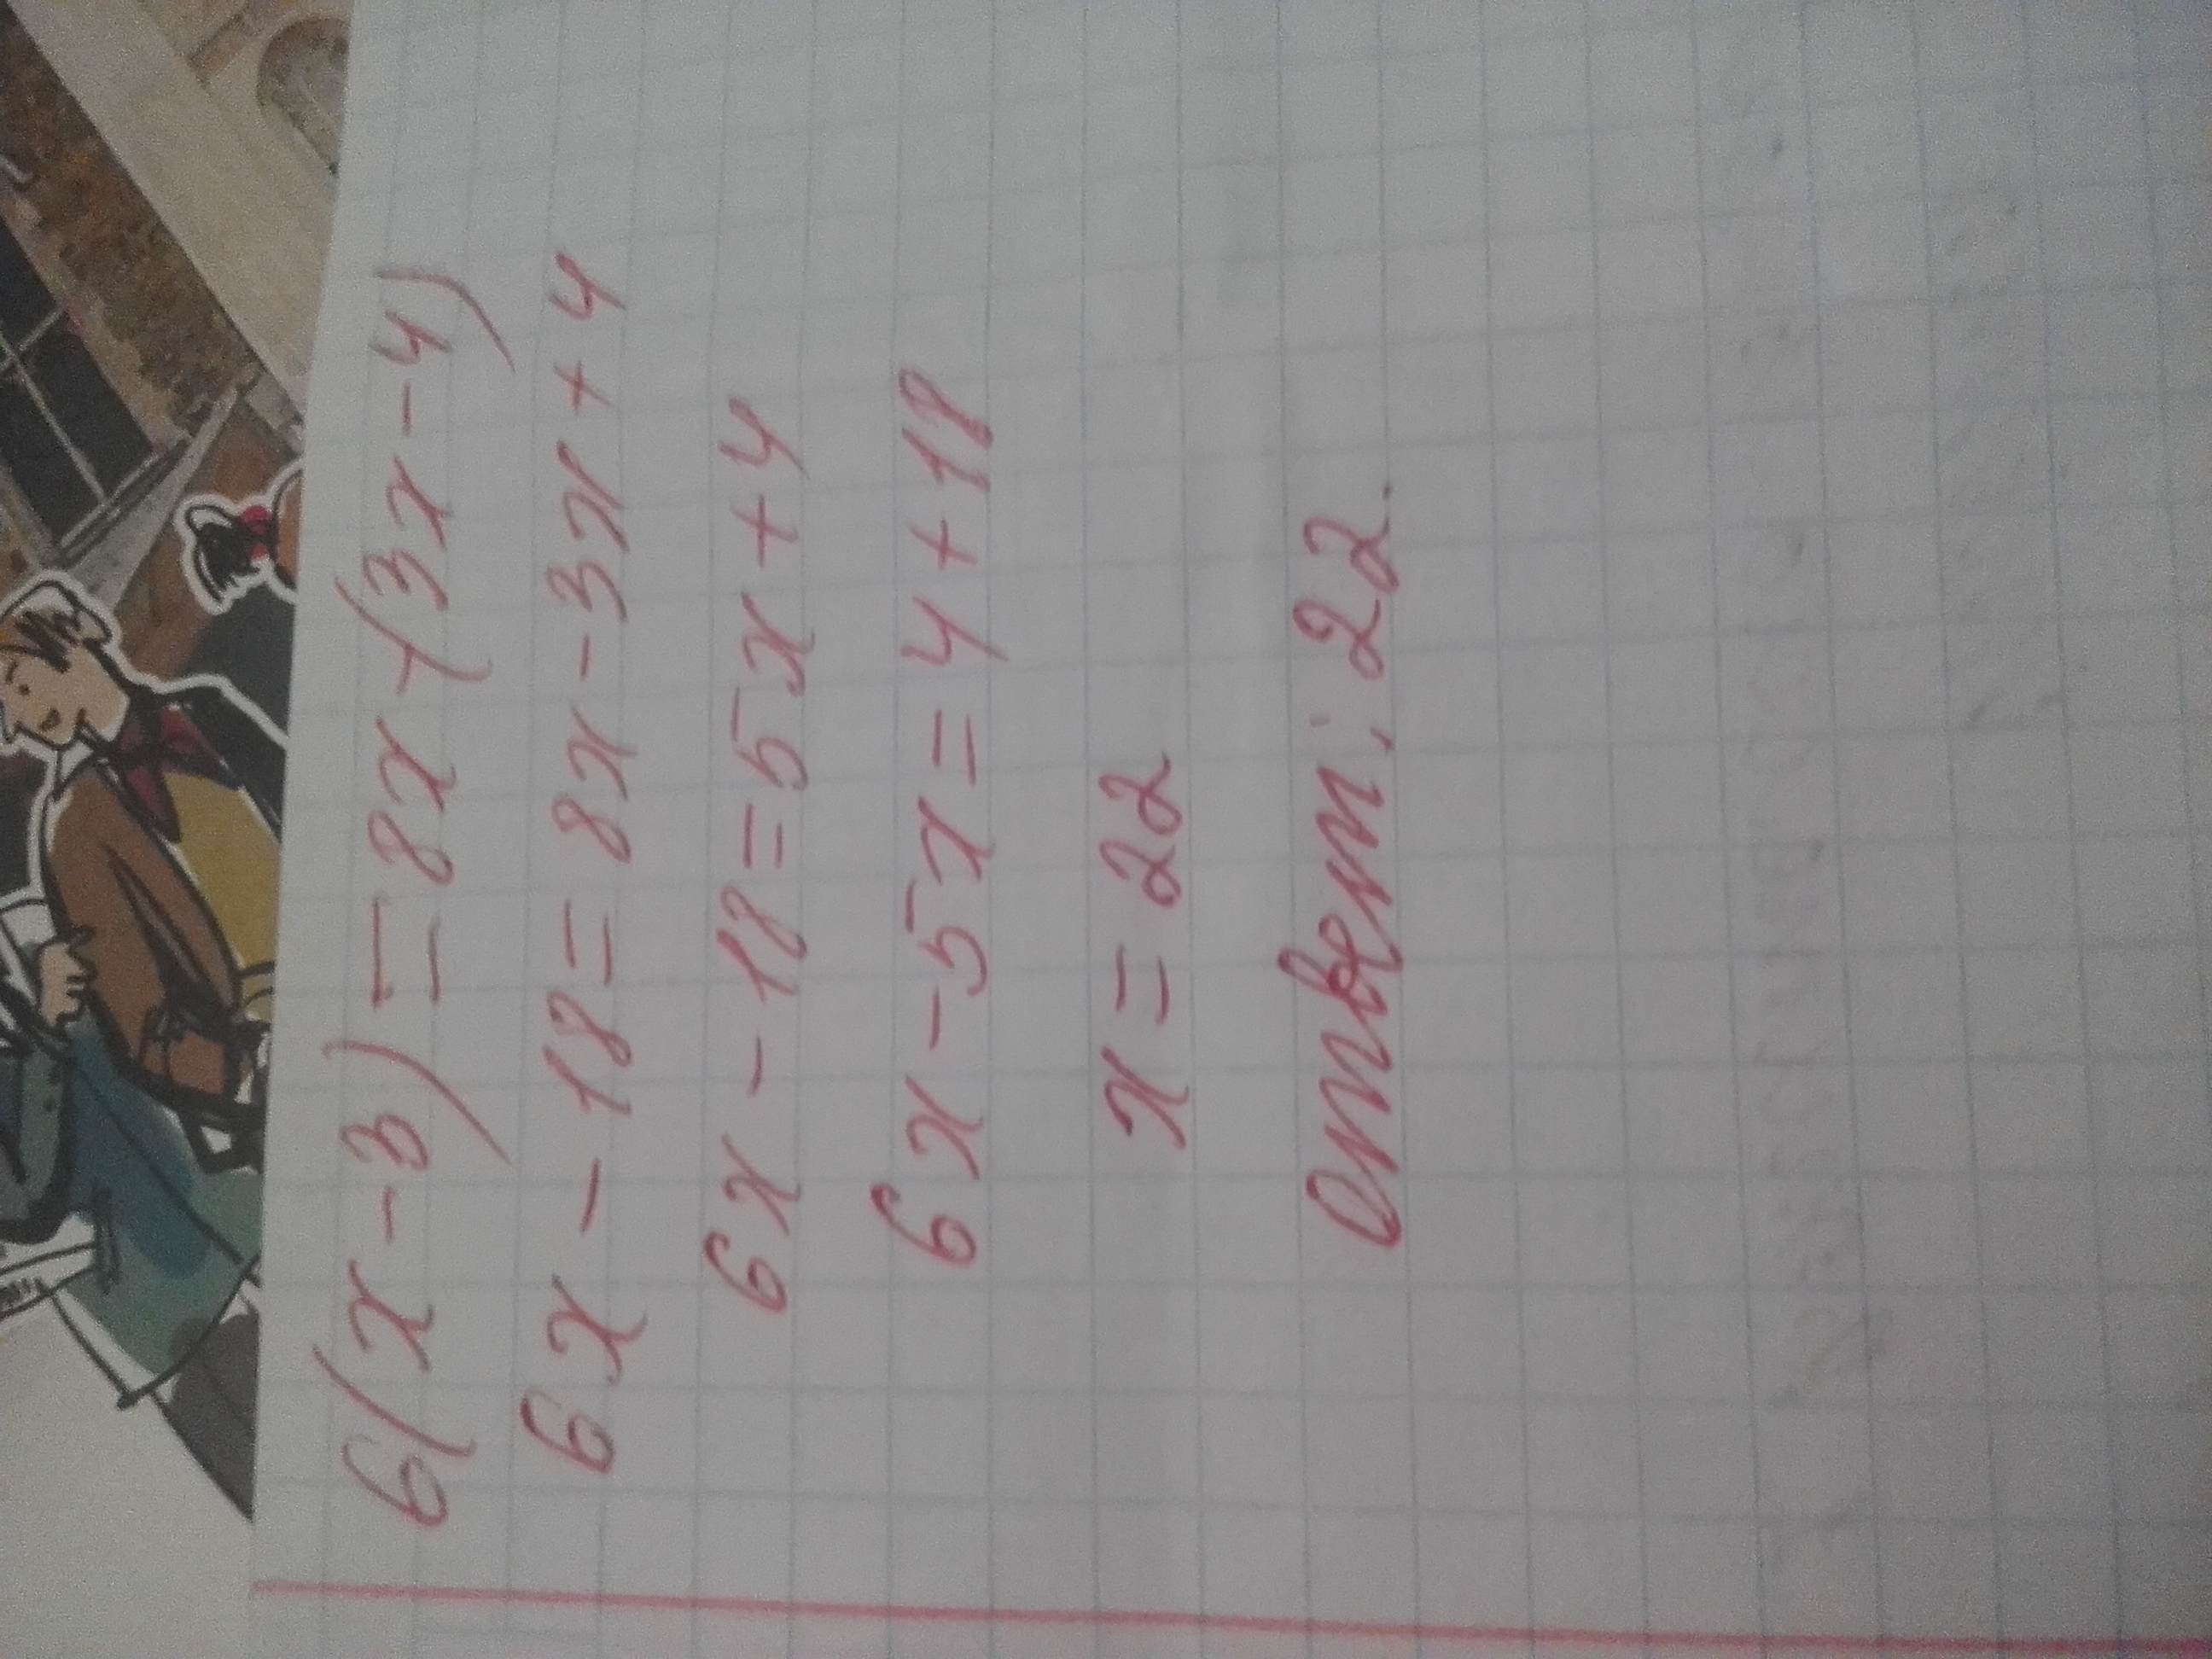 6(x-3)=8x-(3x-4)
6x-18=8x-3x+4
6x-18=5x+4
6x-5x=4+18
x=22
ответ: 22.